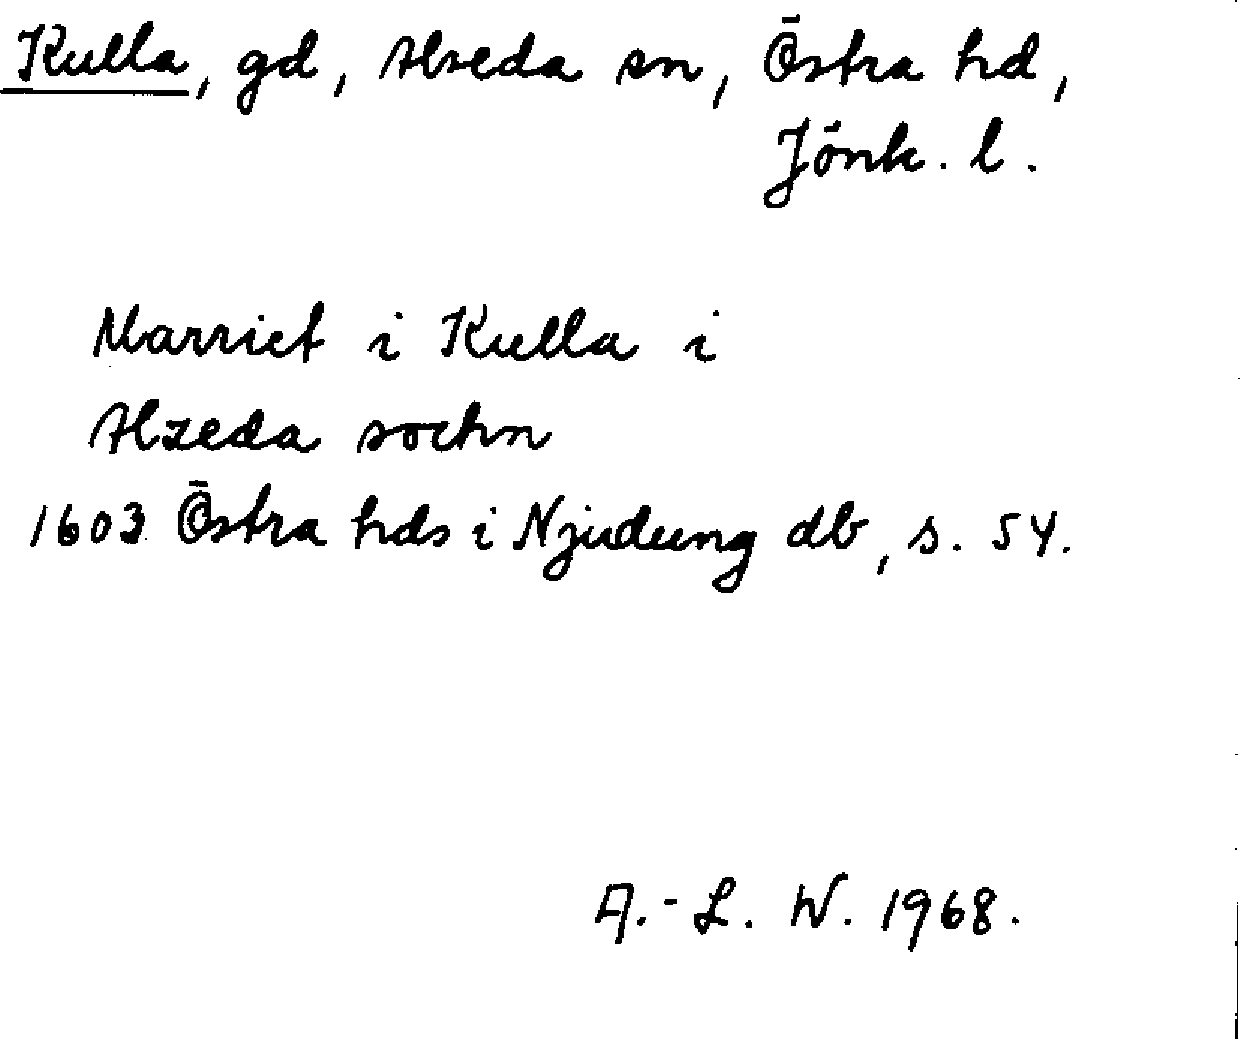 Kulla, gd, Alseda sn, Östra hd,
Jönk. l.
Marriet i Kulla i
Alzeda sochn
1603 Östra hds i Njudung db, s. 54.
A.-L. W. 1968.